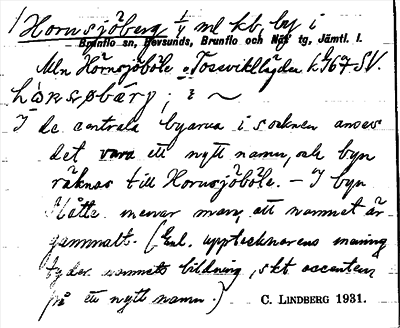 1/ Hornsjöberg 1/4 ml kb, by i
Brunflo sn, Revsunds, Brunflo och Näs tg, Jämtl. l.
Mn Hornsjöböle o Tosvikllägden k 967 SV.
I de centrala byarna i socknen anses
det vara ett nytt namn, och byn
räknas till Hornsjöböle. – I byn
Slåtte menar man, att namnet är
gammalt. (Enl. upptecknarens mening
tyder namnets bildning, skt accenten
på ett nytt namn.)
C. LINDBERG 1931.